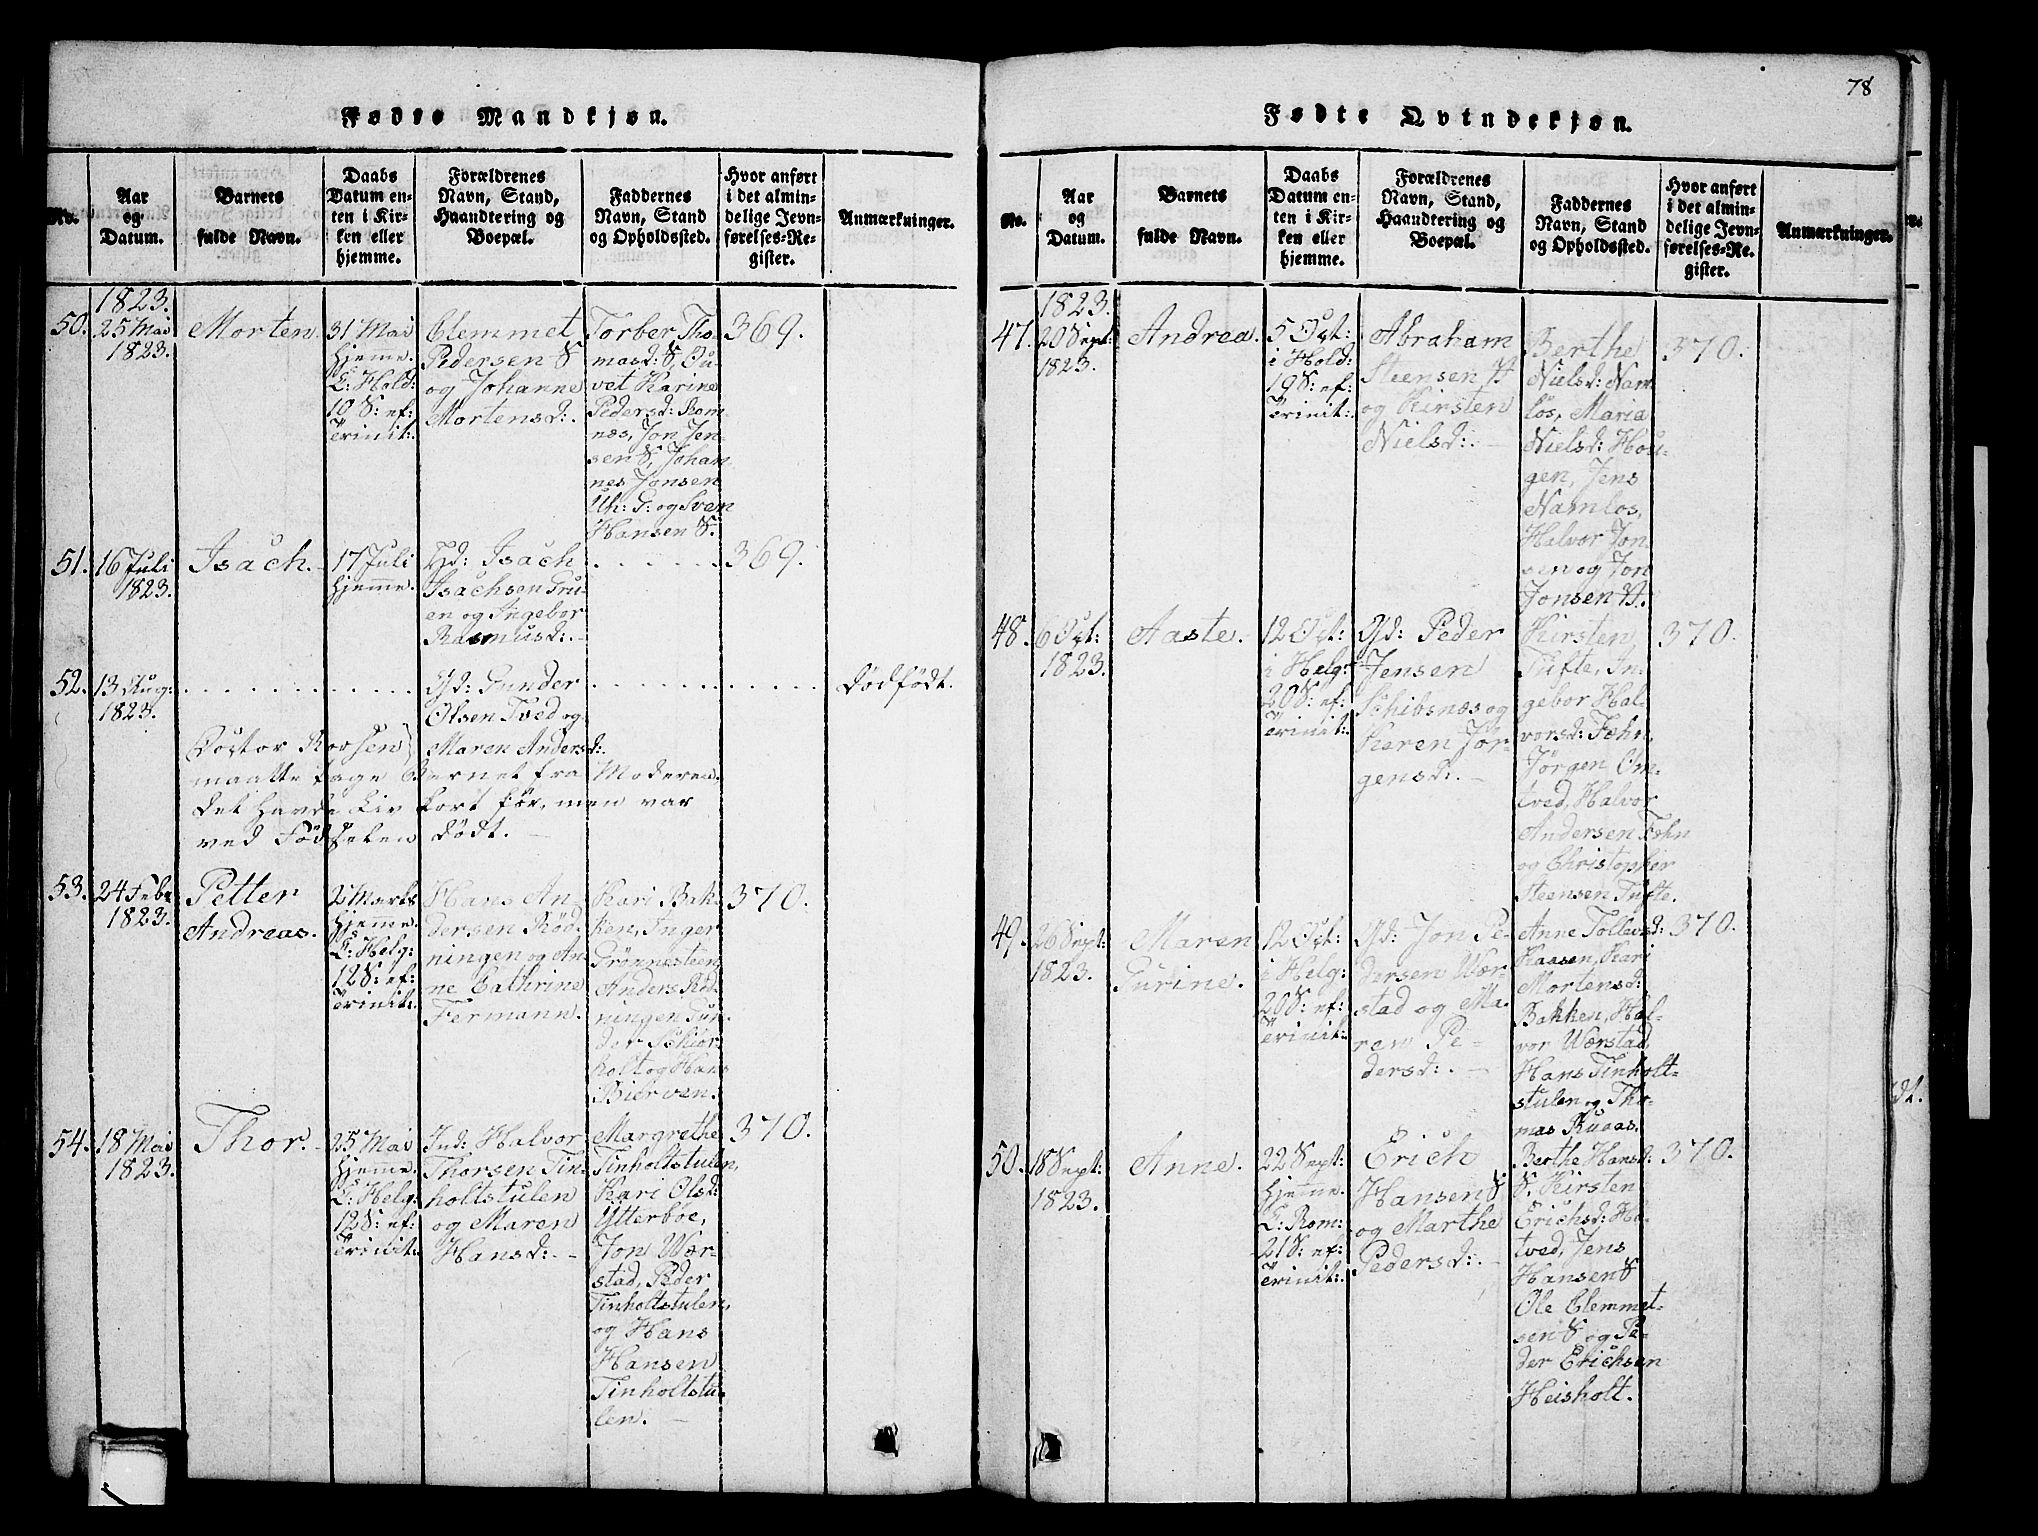 78
Fødte Mandkjøn.
No.
Aar
og
Datum.
Barnets
fulde Navn.
Daabs
Datum en-
ten i Kir-
ken eller
hjemme.
Forældrenes
Navn, Stand,
Haandtering og
Boepæl.
Faddernes
Navn, Stand
og Opholdssted.
Hvor anført
i det almin-
delige Jevn-
førelses-Re-
gister.
Anmærkninger.
1823.
50.
25 Mai
1823.
Morten.
31 Mai
hjeme.
T: Hold:
10 S: ef:
Trinit:
Clemmet
Pedersen S
og Johanne
Mortensd:.
Torber Tho-
masd: S, Ou-
vet Karine
Pedersd: Rom-
næs, Jon Jen-
sen S, Johan-
nes Jonsen
Uh: G: og Sven
Hansen S.
369.
51.
16 Juli
1823.
Isach.
17 Juli
hjemme.
Hd: Isach
Isachsen Gru-
en og Ingebor
Rasmusd:.
. . . . . .
369.
52.
13 Aug:
1823.
Gd: Gunder
Olsen Tved og
Maren Andersd:
dødfødt.
Doctor Roosen
maatte tage Barnet fra Moderen.
det havde Liv kort før, men var
ved Fødselen dødt.
53.
24 Febr
1823.
Petter
Andreas.
2 Marts
hjemme.
T: Helg:
12 S: ef:
Trinit:
Hans An-
dersen Rød-
ningen og An-
ne Cathrine
Fermann.
Kari Bak-
ken, Inger
Grönnesteen,
Anders Röd-
ningen Gun-
der Schior-
holt og Hans
Bierven.
370.
54.
18 Mai
1823.
Thor.
25 Mai
hjemme.
T: Helg:
12 S: ef:
Trinit:
Ind: Halvor
Thorsen Tin-
holtstulen
og Maren
Hansd:.
Margrethe
Tinholtstulen,
Kari Olsd:
Ytterböe,
Jon Wær-
stad, Peder
Tinholtstulen,
og Hans
Hansen
Tinholtstu-
len.
370.
Fødte Qvindekjøn.
No.
Aar
og
Datum.
Barnets
fulde Navn.
Daabs
Datum en-
ten i Kir-
ken eller
hjemme.
Forældrenes
Navn, Stand,
Haandtering og
Boepæl.
Faddernes
Navn, Stand
og Opholdssted.
Hvor anført
i det almin-
delige Jevn-
førelses-Re-
gister.
Anmærkninger.
1823.
47.
20 Sept:
1823.
Andrea.
5 Oct:
i Hold:
19 S: ef:
Trinit:
Abraham
Steensen H
og Kirsten
Nielsd:.
Berthe
Nielsd: Nam-
los, Maria
Nielsd: Hou-
gen, Jens
Namlos,
Halvor Jon-
sen og Jon
Jonsen H.
370.
48.
6 Oct:
1823.
Aaste.
12 Oct:
i Helg:
20 S: ef:
Trinit:
Gd: Peder
Jensen
Schibsnæs og
Karen Jör-
gensd:.
Kirsten
Tufte, In-
gebor Hal-
vorsd: Fæhn,
Jörgen Om-
tved, Halvor
Andersen Fæhn
og Christopher
Steensen Tufte.
370.
49.
26 Sept:
1823.
Maren
Gurine.
12 Oct:
i Helg:
20 S: ef:
Trinit:
Gd: Jon Pe-
dersen Wær-
stad og Ma-
ren Pe-
dersd:.
Anne Tollevsd:
Haasen, Kari
Mortensd:
Bakken, Hal-
vor Wærstad,
Hans Tinholt-
stulen og Tho-
mas Ruaas.
370.
50.
18 Sept:
1823.
Anne.
22 Sept:
hjemme.
T: Rom:
21 S: ef:
Trinit:
Erich
Hansen S
og Marthe
Pedersd:.
Berthe Hansd:
S. Kirsten
Erichsd: Ho-
tved, Jens
Hansen S
Ole Clemmet-
sen S og Pe-
der Erichsen
Heisholt.
370.